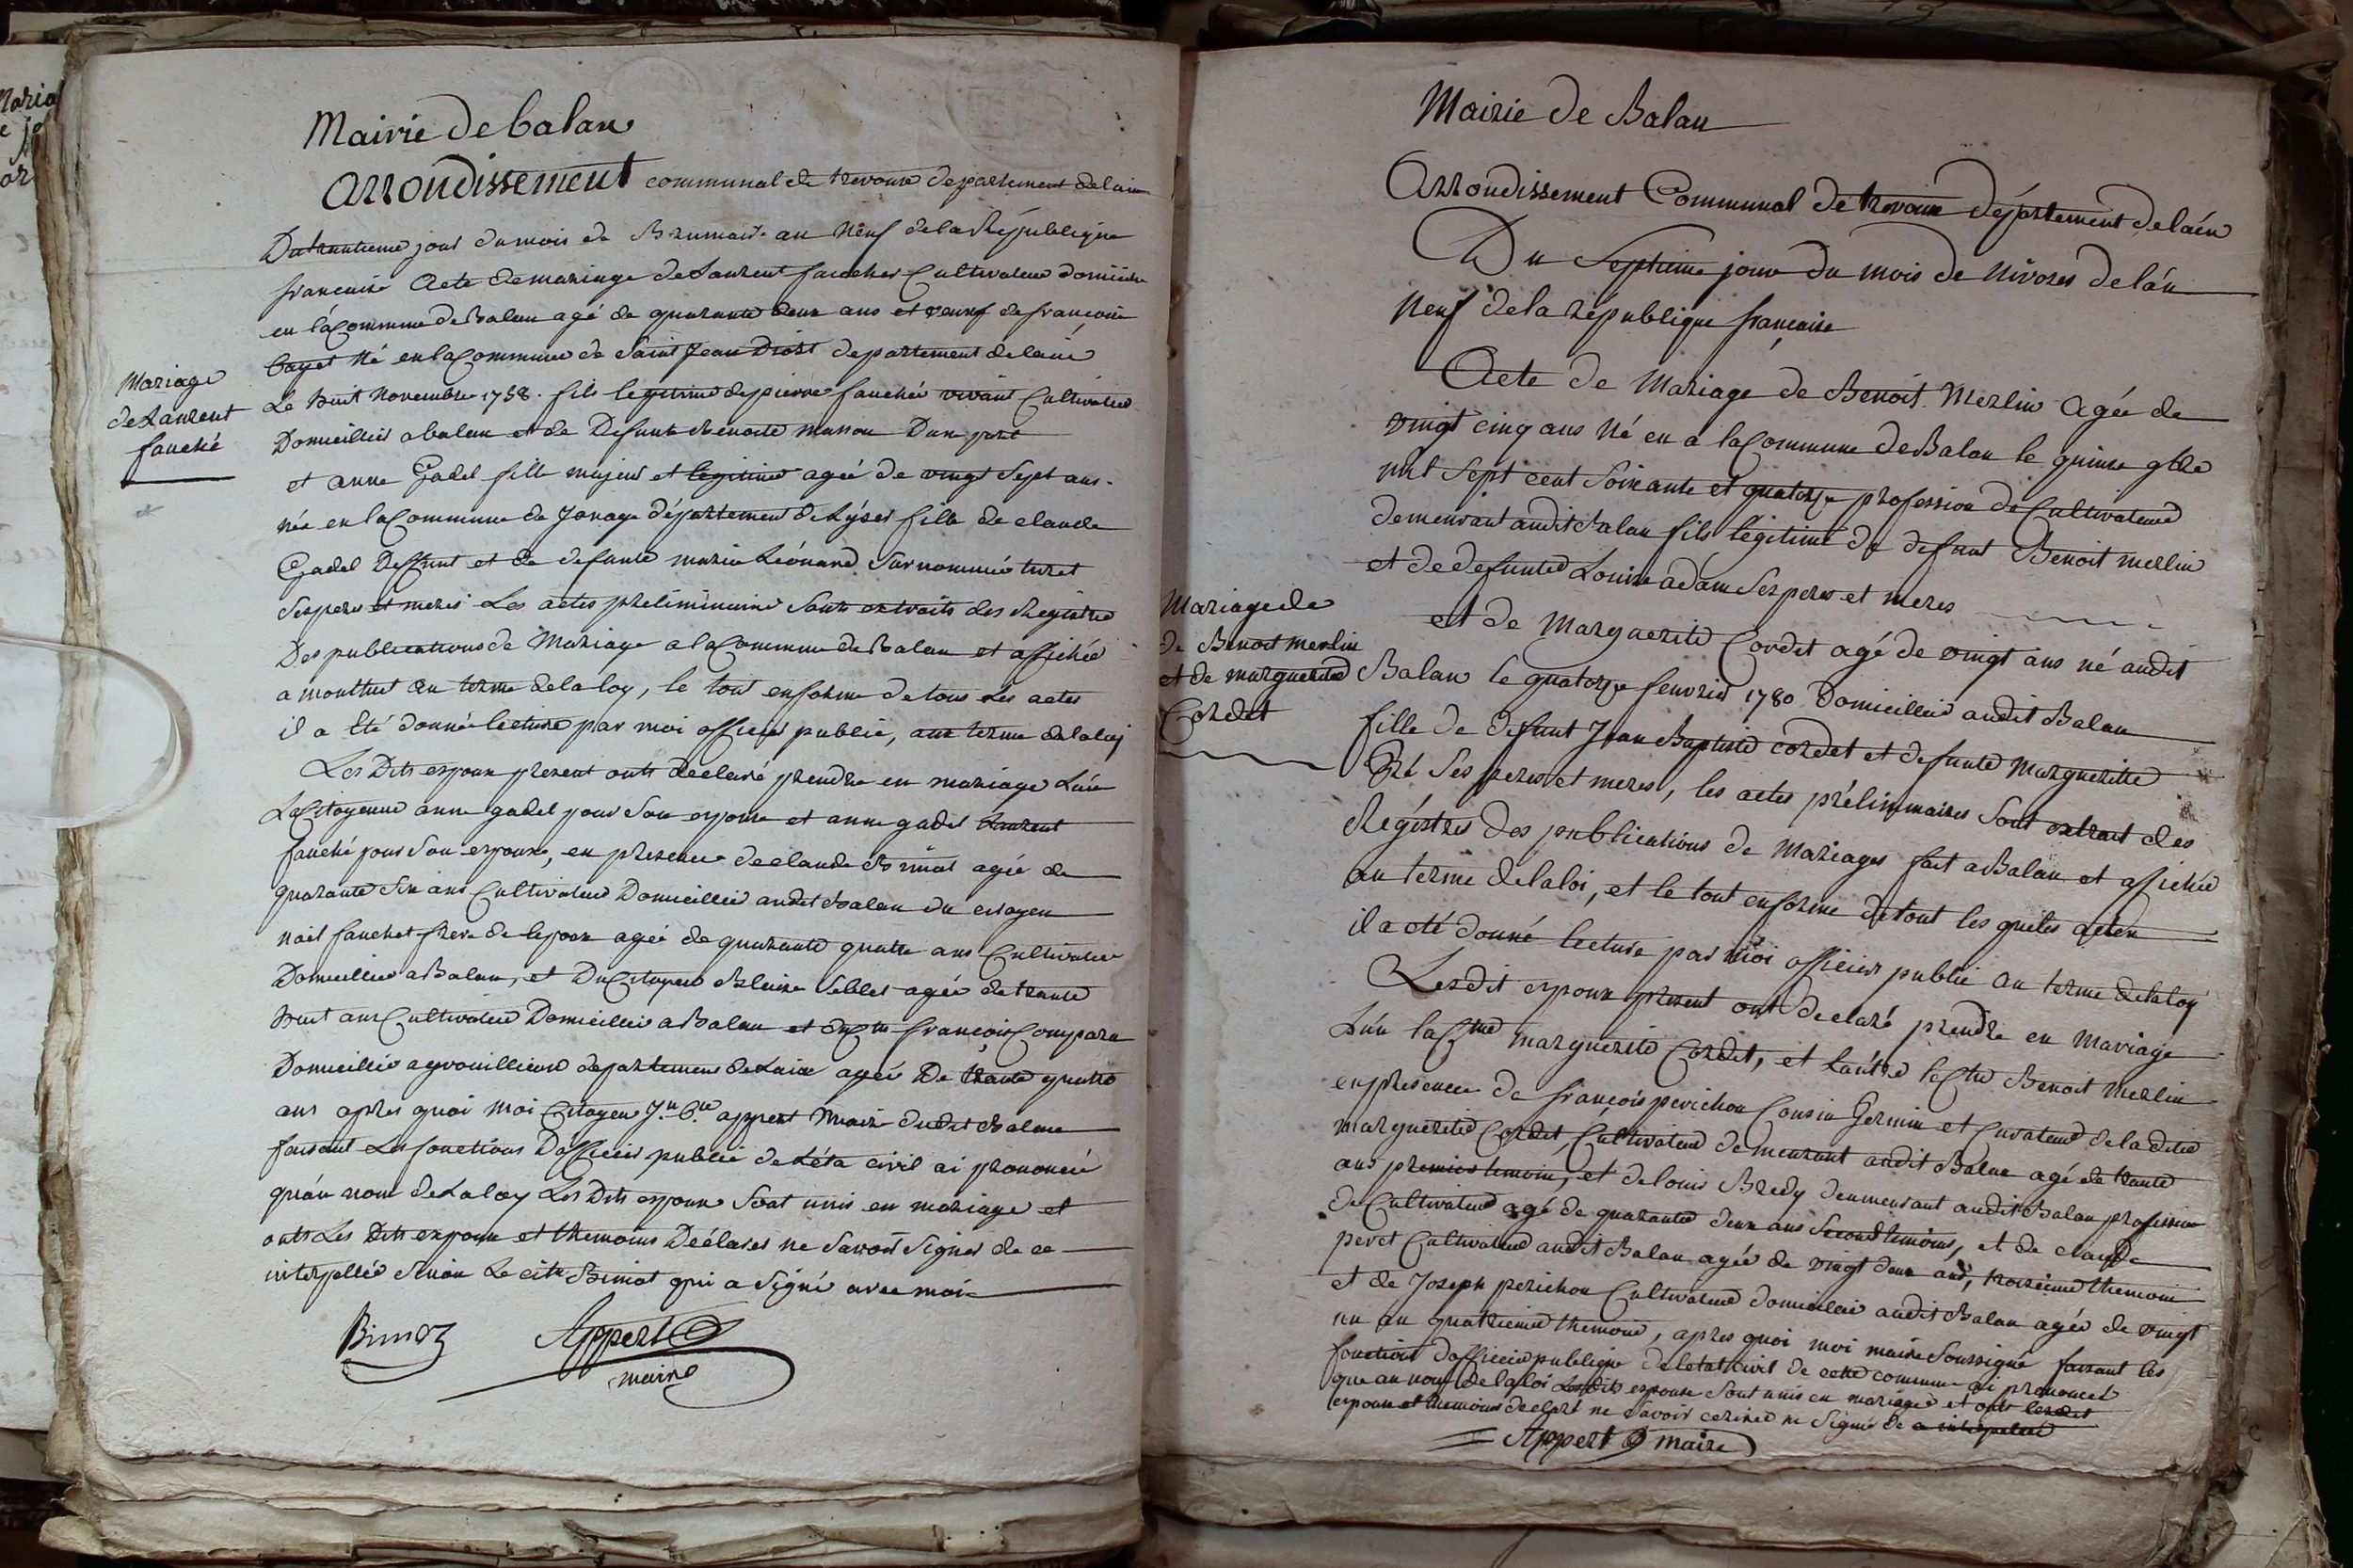 Mairie de balan
arrondissement communal de trevoux departement delain
Du trantieme jour du mois de Brumaire an neuf dela République
francaise Acte de mariage de Laurent faucher Cultivateur domicilié
en la Commune de Balan agé de quarante deux ans et veuf de francoise
bayet Né en la Commune de Saint Jean Diost departement delain
Le huit Novembre 1758. fils legitime de pierre fauché vivant Cultivateur
Domicillié a balan et de Defunte Benoite manon Dune part
Mariage
de Laurent
fauché
et anne Gadel fille majeur et legitime agée de vingt Sept ans.
née en la Commune de Jonage département de Lyser fille de claude
Gadel Deffunt et de defunte marie Léonard Surnommée turet
Ses peres et meres Les actes preliminaire Sonts extraits des Registre
Des publications de Mariage a la Commune de Balan et affichée
a montluet au terme dela loy, le tout en forme de tous Les actes
il a été donné lecture par moi officier public, aux terme dela loy
Les Dits espoux present onts declaré prendre en mariage Lún
La Citoyenne anne gadel pour Son espouse et anne gadel Laurent
fauché pour Son espoux, en presence de claude Bimot agée de
quarante Six ans Cultivateur Domicillié audit Balan du citoyen
noël fauchet frere de lepoux agée de quarante quatre ans Cultivateur
Domicillié a Balan, et Du Citoyen Blaise Seblet agée de trante
huit ans Cultivateur Domicillié a Balan et du Cten francois Compara
Domicillié a genouilleux departement de Lain agée De trante quatre
ans apres quoi moi Citoyen Jn Bte appert Maire dudit Balan
faisant Les fonctions Dofficier public de Léta civil ai prononcé
quáu nom de La loy Les Dits espoux Sont unis en mariage et
onts Les Dits espoux et themoins Déclarer ne Savoir Signer de ce
interpellée Sinon Le cit. Bimot qui a Signé avec moi
Bimoz Appert
maire
Mairie de Balan
Arrondissement Communal de trevoux département de laén
Du Septieme jour du mois de Nivoses de lán
Neuf dela république francaise
Acte de Mariage de Benoit Merlin agée de
vingt cinq ans Né en a la Commune de Balan le quinze 9bre
mil Sept cent Soixante et quatorze profession de Cultivateur
demeurant audit Balan fils légitime de defunt Benoit merlin
et de defunte Louise adam Ses peres et meres
Mariage de
de Benoit merlin
et de marguerite
Cordet
et de Marguerite Cordet agé de vingt ans né audit
Balan le quatorze fevrier 1780 Domicillié audit Balan
fille de defunt Jean Baptiste cordet et defunte Margueritte
Ses peres et meres, les actes préliminaires Sont extrait des
Régistres des publications de Mariages fait a Balan et affichée
au terme de la loi, et le tout en forme de tout les quels acten
il a été donné lecture par moi officier public au terme de la loy
Lesdit espoux present ont declaré prendre en Mariage
Lún la Cne marguerite Cordet, et Láutre le Cten Benoit Merlin
en presence de françois perichon Cousin Germin et Curateur de la dite
marguerite Cordet, Cultivateur demeurant audit Balan agé de trante
ans premier temoin, et de louis Bredy demeurant audit Balan profession
de Cultivateur agé de quarante deux ans Second temoins, et de claude
peret Cultivateur audit Balan agée de vingt deux ans, troisieme themoin
et de Joseph perichon Cultivateur domicillié audit Balan agée de vingt
un an quatrieme themoin, apres quoi moi maire Soussigné faisant les
fonction dofficier publique de létat civil de cette commune ai prononcée
que au nom de la loi Lesdits espoux Sont unis en mariage et onts lesdit
espoux et themoins declaré ne Savoir ecrire ne Signé de ce interpellée
Appert maire